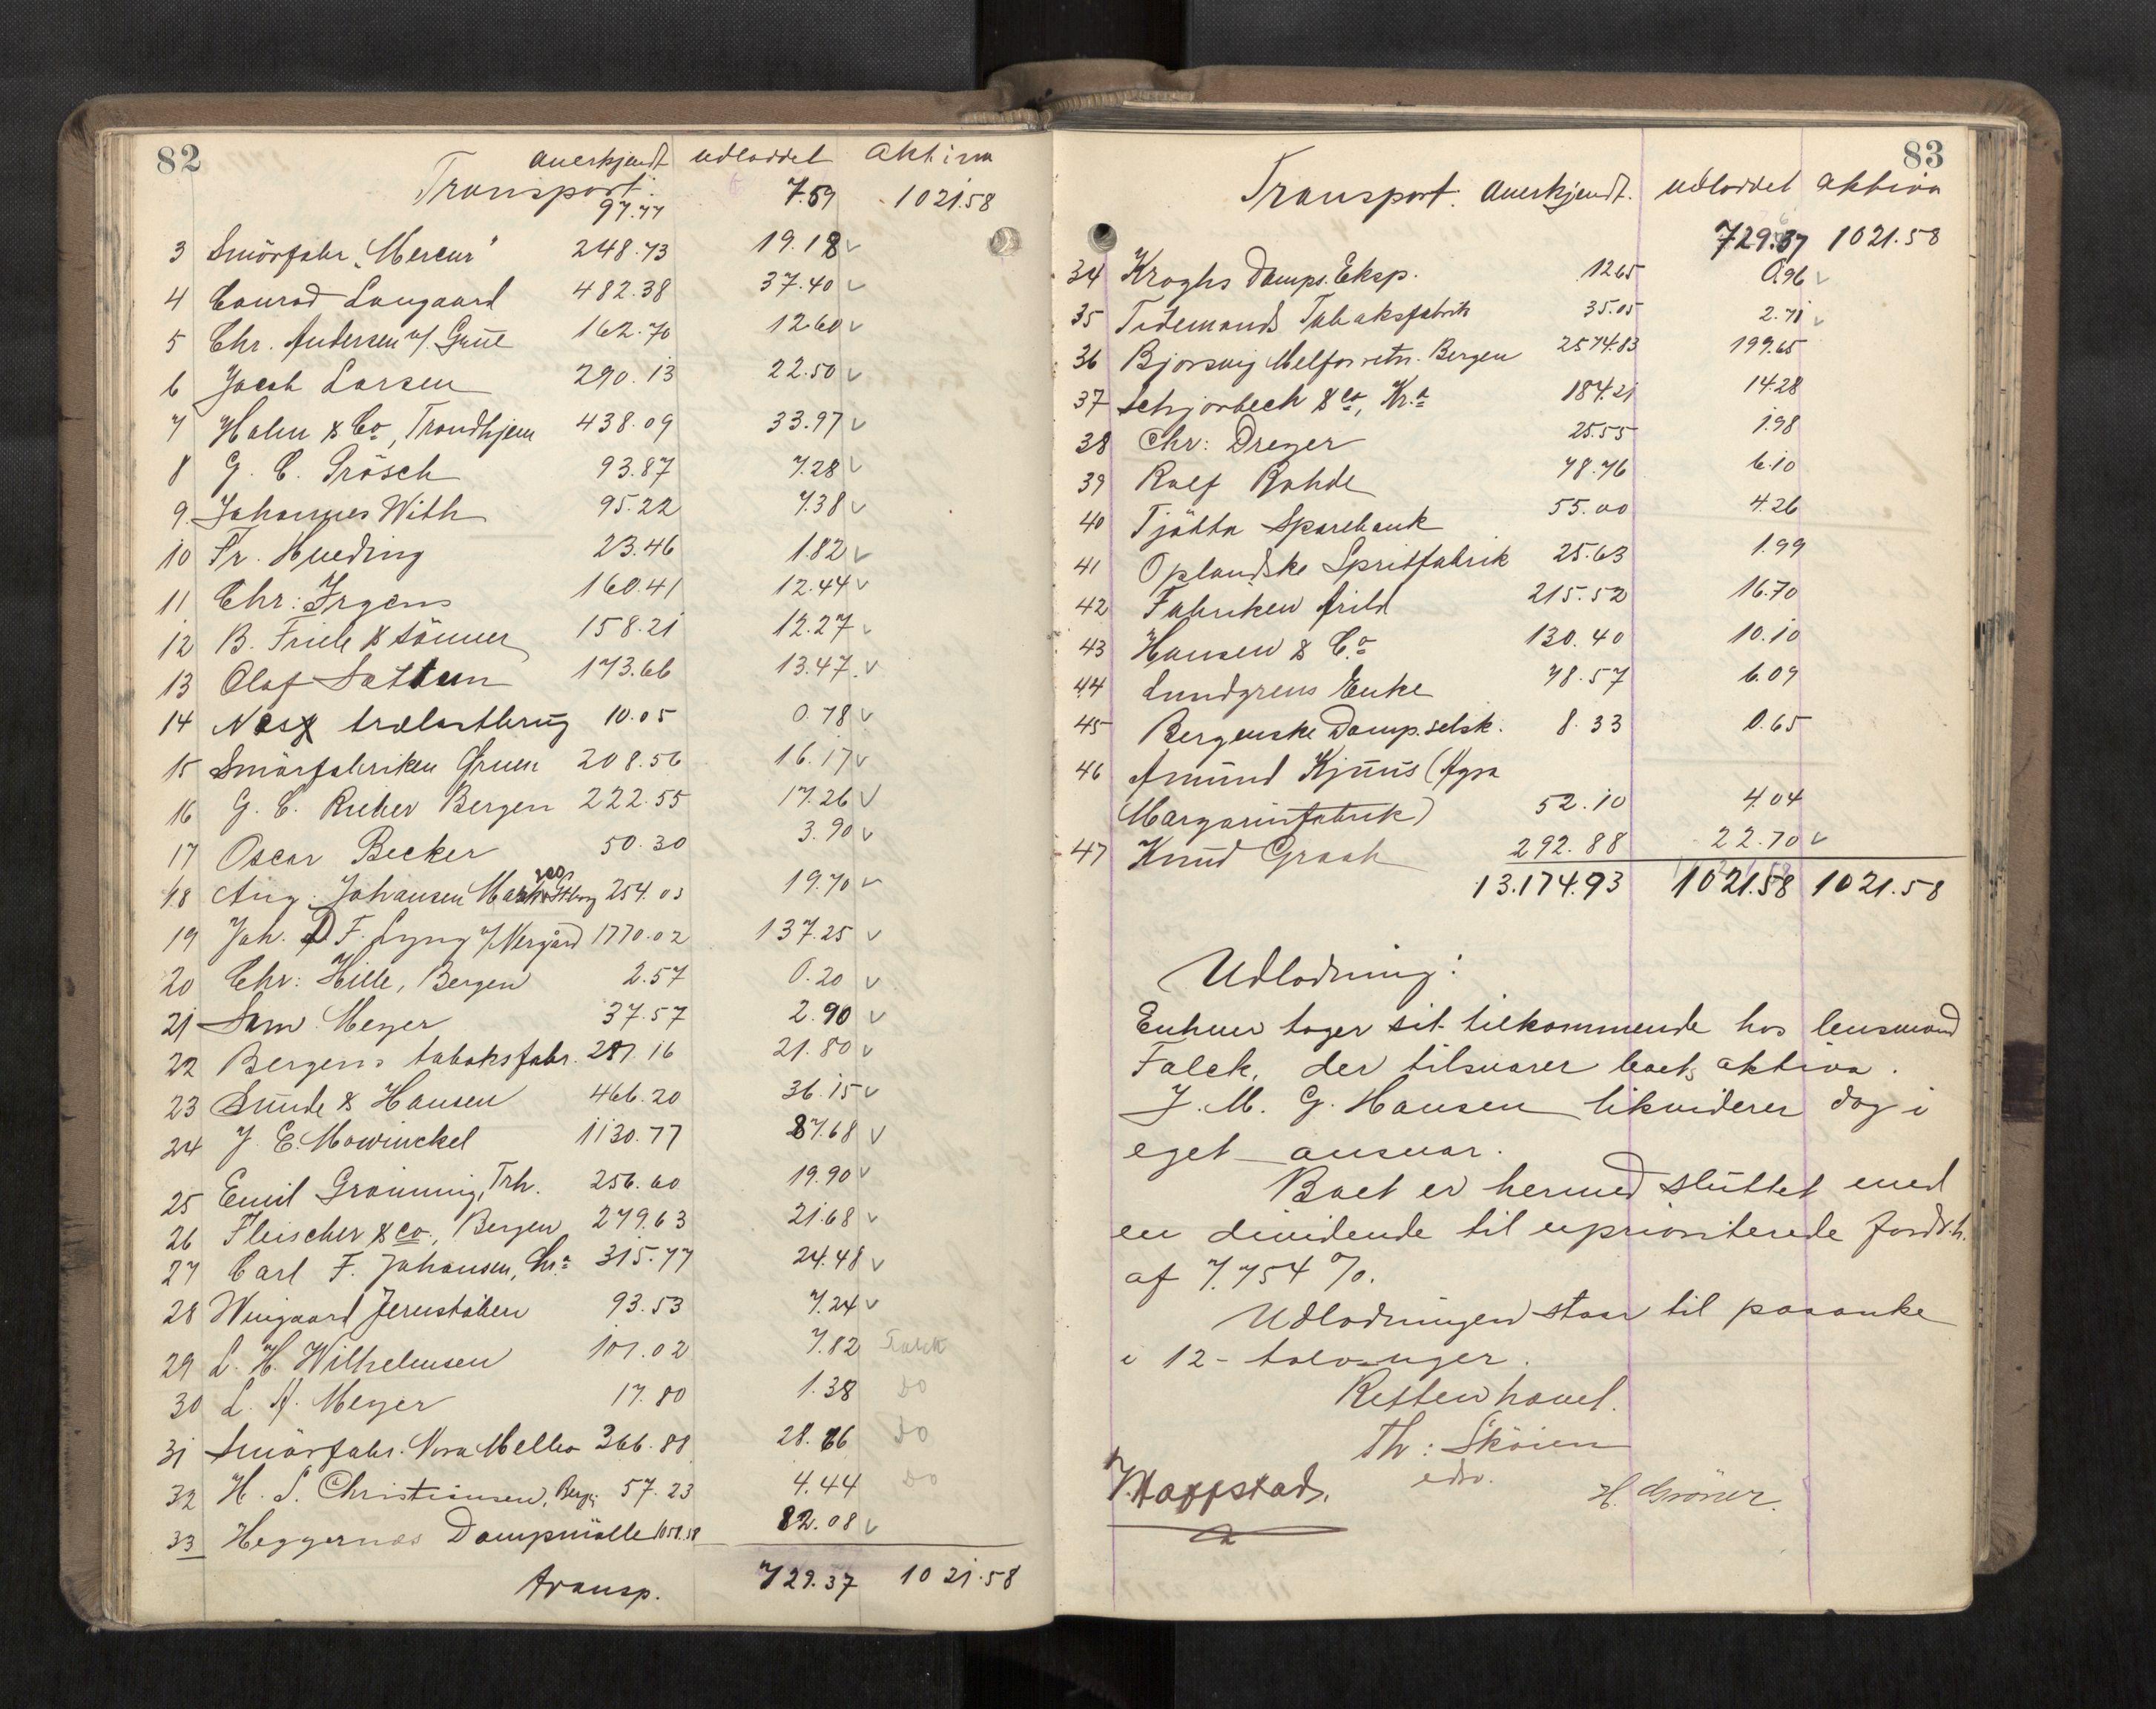 82
anerkjendt udloddet aktiva
Transport. 97.77 7.59 1021.58
3 Smörfabr. „Mercur" 248.73 19.18 v
4 Conrad Langaard 482.38 37.40 v
5 Chr. Andersen 162.70 12.60 v
6 Jacob Larsen 290.13 22.50 v
7 Halm & Co, Trondhjem 438.09 33.97 v
8 G. C. Grösch 93.87 7.28 v
9 Johannes With 95.22 7.38 v
10 Fr. Hueding 23.46 1.82 v
11 Chr: Irgens 160.41 12.44 v
12 B. Friele & Sönner 158.21 12.27 v
13 Olaf Sættem 173.66 13.47 v
14 trælastbrug 10.05 0.78 v
15 Smörfabriken Gruen 208.56 16.17 v
16 G. C. Rieber Bergen 222.55 17.26 v
17 Oscar Becker 50.30 3.90 v
18 Aug. Johansen 254.03 19.70 v
19 Joh. D F. Lyng v/ Nergård 1770.02 137.25 v
20 Chr: Hille, Bergen 2.57 0.20 v
21 Sam. Meyer 37.57 2.90 v
22 Bergens tabaksfabr. 281.16 21.80 v
23 Sunde & Hansen 466.20 36.15 v
24 J. E. Mowinckel 1130.77 87.68 v
25 Emil Grønning, Trh. 256.60 19.90 v
26 Fleischer & co., Bergen 279.63 21.68 v
27 Carl F. Johansen, 315.77 24.48 v
28 Wingaard Jernstöberi 93.53 7.24 v
29 L. H. Wilhelmsen 101.02 7.82 Falck
30 L. A. Meyer 17.80 1.38 Do
31 Smörfabr. Nora Melbo 366.88 28.66 Do
32 H. S. Christiansen, Berg. 57.23 4.44 Do
33 Heggernæs Dampmölle 1058.58 82.08 v
transp. 729.37 1021.58
83
Transport. anerkjendt. udloddet aktiva
729.37 1021.58
34 Kroghs Damps. Eksp. 12.65 0.96 v
35 Tidemands Tabaksfabrik 35.05 2.71 v
36 Bjørsvig Melforretn. Bergen 2574.83 199.65
37 Schjørbech & co, Kr.a 184.21 14.28
38 Chr: Dreyer 25.55 1.98
39 Rolf Rohde 78.76 6.10
40 Tjötta Sparebank 55.00 4.26
41 Oplandske Spritfabrik 25.63 1.99
42 Fabriken Arild 215.52 16.70
43 Hansen & Co 130.40 10.10
44 Lundgrens Enke 78.57 6.09
45 Bergenske Damp.selsk. 8.33 0.65
46 Amund Kjuus (Agra
Margarinfabrik) 52.10 4.04
47 Knud Graah 292.88 22.70 v
13.174.93 1021.58 1021.58
Udlodning:
Enhver tager sit tilkommende hos lensmand
Falck, der tilsvarer boets aktiva.
J. M. G. Hansen likviderer dog i
eget ansvar.
Boet er hermed sluttet med
en dividende til uprioriterede fords.h.
af 7.754 %.
Udlodningen staar til paaanke
i 12 - tolv - uger.
Retten hævet.
Th: Sköien
edsv.
H. Gröner.